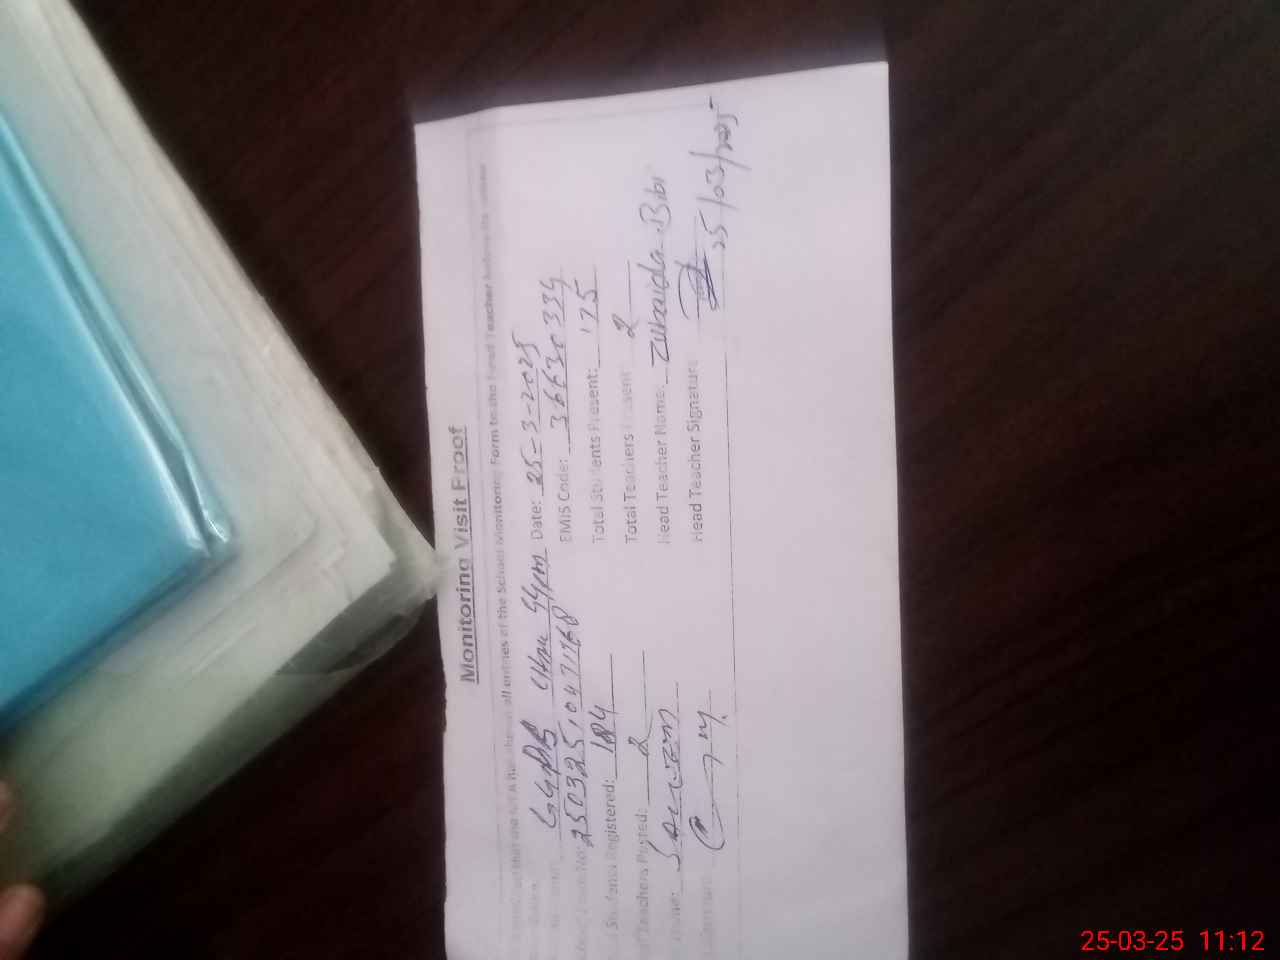 Monitoring Visit Proof
all entries of the School Monitoring Form to the Head Teacher before
Date: 25-3-2025
GGPS 44m
EMIS Code: 36630334
No: 25032510471768
Total Students Present: 175
Students Registered: 184
Total Teachers Present 2
Teachers Posted: 2
Head Teacher Name: Zubaida Bibi
Name:
Head Teacher Signature 25/03/2025
25-03-25 11:12